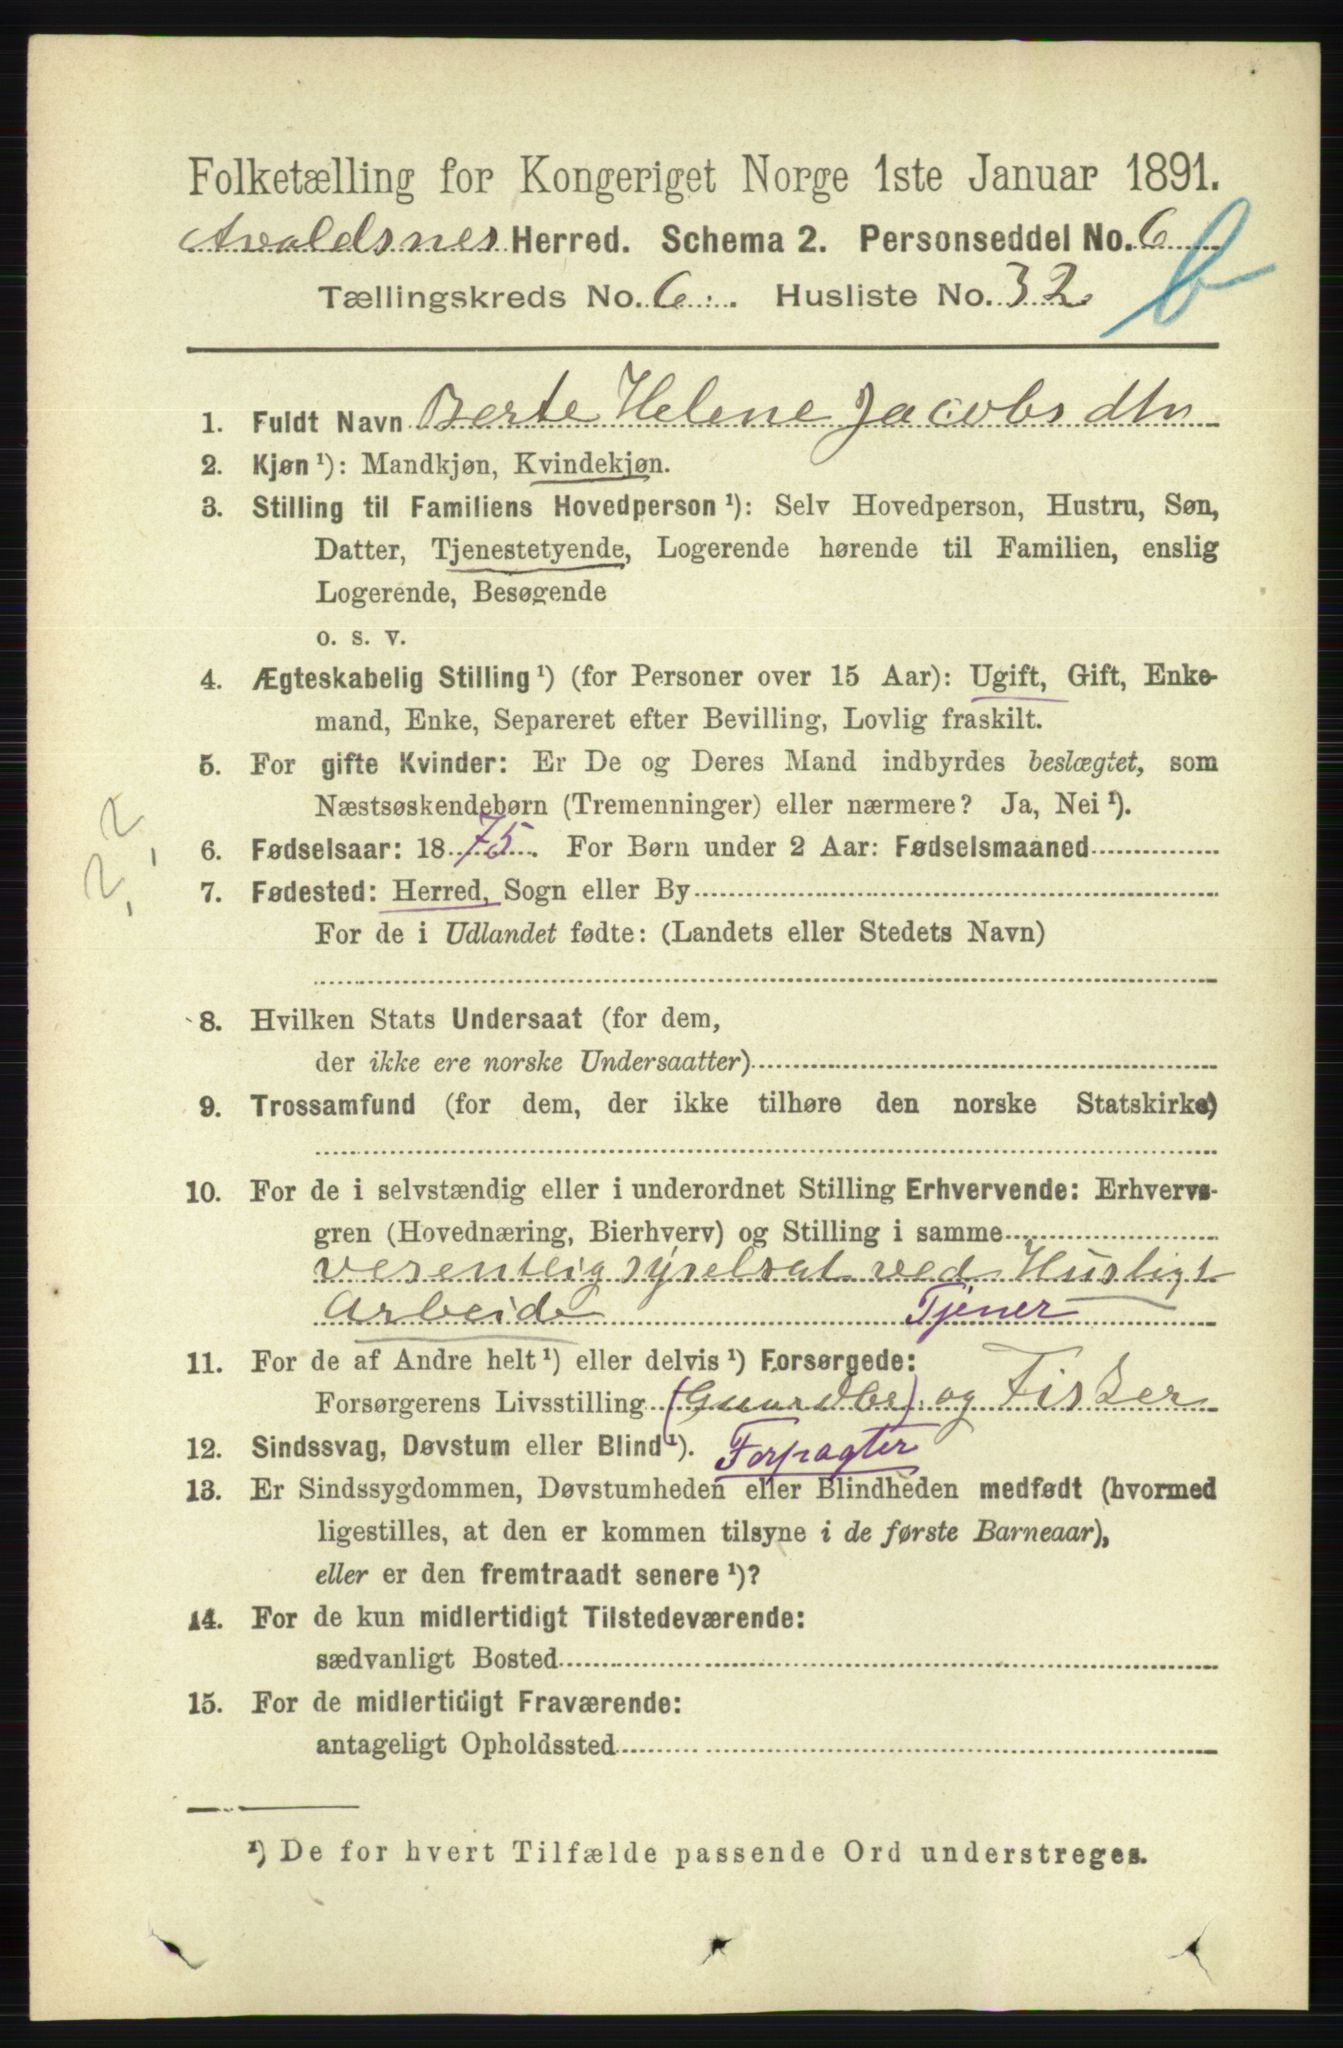 Folketælling for Kongeriget Norge 1ste Januar 1891.
Avaldsnes Herred. Schema 2. Personseddel No. 6
Tællingskreds No. 6. Husliste No. 32 b
1. Fuldt Navn Berte Helene Jacobsdtn
2. Kjøn ¹): Mandkjøn, Kvindekjøn.
3. Stilling til Familiens Hovedperson ¹): Selv Hovedperson, Hustru, Søn,
Datter, Tjenestetyende, Logerende hørende til Familien, enslig
Logerende, Besøgende
o. s. v.
4. Ægteskabelig Stilling ¹) (for Personer over 15 Aar): Ugift, Gift, Enke-
mand, Enke, Separeret efter Bevilling, Lovlig fraskilt.
5. For gifte Kvinder: Er De og Deres Mand indbyrdes beslægtet, som
Næstsøskendebørn (Tremenninger) eller nærmere? Ja, Nei ¹).
2,2
6. Fødselsaar: 1875. For Børn under 2 Aar: Fødselsmaaned
7. Fødested: Herred, Sogn eller By
For de i Udlandet fødte: (Landets eller Stedets Navn)
8. Hvilken Stats Undersaat (for dem,
der ikke ere norske Undersaatter)
9. Trossamfund (for dem, der ikke tilhøre den norske Statskirke)
10. For de i selvstændig eller i underordnet Stilling Erhvervende: Erhvervs-
gren (Hovednæring, Bierhverv) og Stilling i samme
vesentlig syselsat ved Husligt
Arbeide Tjener
11. For de af Andre helt ¹) eller delvis ¹) Forsørgede:
Forsørgerens Livsstilling (Gaardbr) og Fisker
12. Sindssvag, Døvstum eller Blind ¹). Forpagter
13. Er Sindssygdommen, Døvstumheden eller Blindheden medfødt (hvormed
ligestilles, at den er kommen tilsyne i de første Barneaar),
eller er den fremtraadt senere ¹)?
14. For de kun midlertidigt Tilstedeværende:
sædvanligt Bosted
15. For de midlertidigt Fraværende:
antageligt Opholdssted
¹) De for hvert Tilfælde passende Ord understreges.